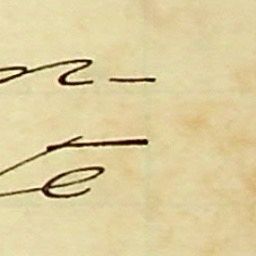 n-
te